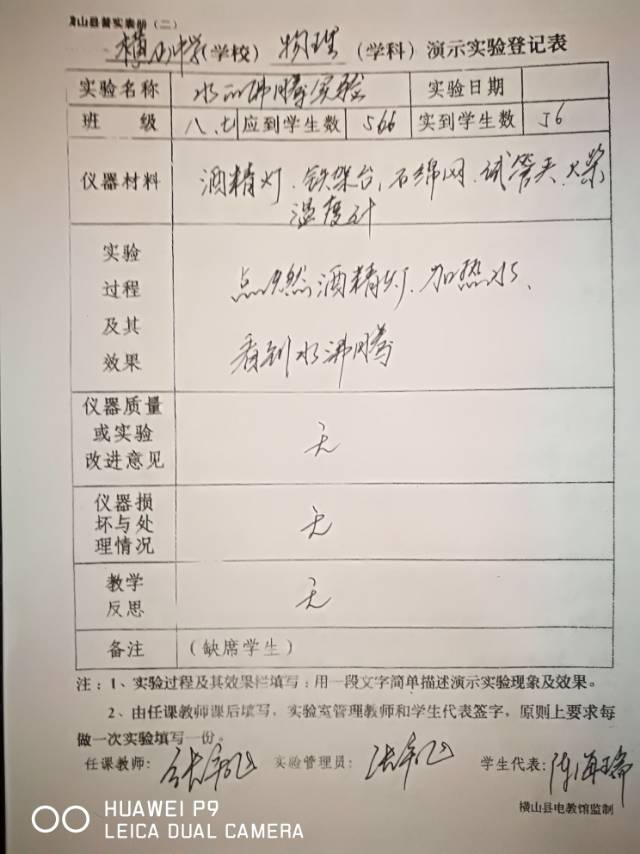 横山县普实表册（二）
横山中学（学校） 物理 （学科）演示实验登记表
实验名称 水的沸腾实验 实验日期
班 级 八、七 应到学生数 566 实到学生数 56
仪器材料 酒精灯、铁架台、石绵网、试管夹、火柴
温度计
实验
过程
及其
效果
点燃酒精灯、加热水、
看到水沸腾
仪器质量
或实验
改进意见
无
仪器损
坏与处
理情况
无
教学
反思
无
备注 （缺席学生）
注：1、实验过程及其效果栏填写：用一段文字简单描述演示实验现象及效果。
2、由任课教师课后填写，实验室管理教师和学生代表签字，原则上要求每
做一次实验填写一份。
任课教师： 实验管理员： 学生代表：陈海瑞
横山县电教馆监制
HUAWEI P9
LEICA DUAL CAMERA